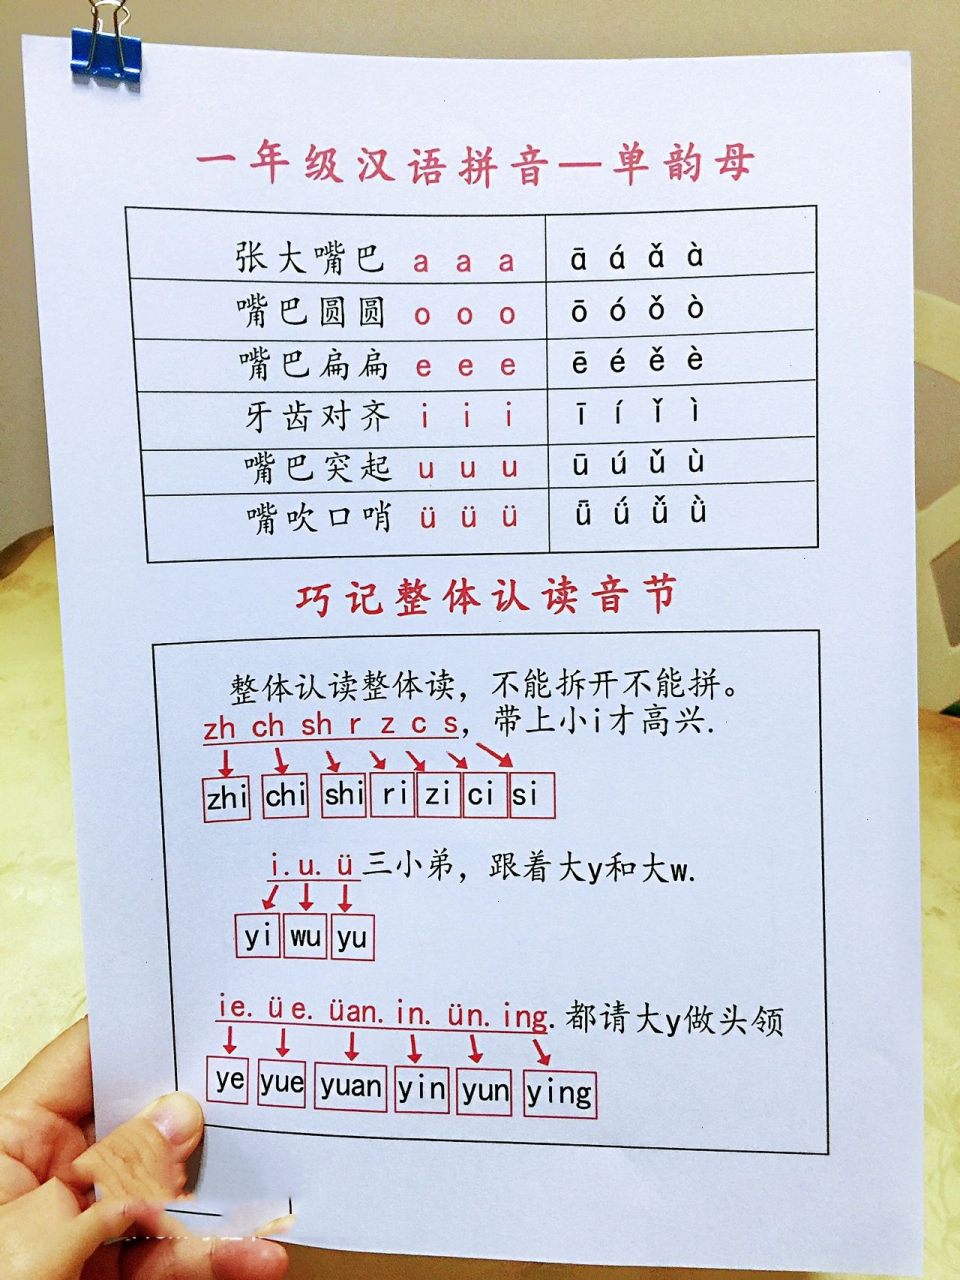 一年级汉语拼音—单韵母
张大嘴巴 a a a ā á ǎ à
嘴巴圆圆 o o o ō ó ǒ ò
嘴巴扁扁 e e e ē é ě è
牙齿对齐 i i i ī í ǐ ì
嘴巴突起 u u u ū ú ǔ ù
嘴吹口哨 ü ü ü ǖ ǘ ǚ ǜ
巧记整体认读音节
整体认读整体读，不能拆开不能拼。
zh ch sh r z c s，带上小i才高兴.
zhi chi shi ri zi ci si
i.u.ü三小弟，跟着大y和大w.
yi wu yu
ie.üe.üan.in.ün.ing.都请大y做头领
ye yue yuan yin yun ying